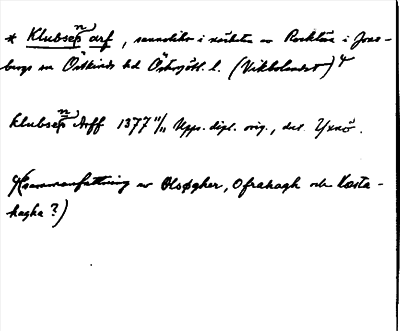 * Klubsep arf, sannolikt i närheten av Rocklösa i Jons-
bergs sn Östkinds hd Östergötl. l. (Vikbolandet)
Klubsep Arff 1377 11/11 Upps. dipl. orig., dat.
(Sammanfattning av Olsøgher, Ofrahagh och Västa-
hagha?)